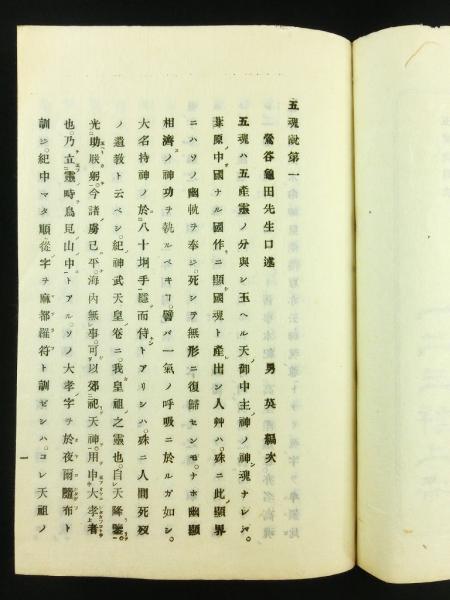 五魂説第一
鶯谷龜田先生口述　男　英編次
五魂ハ五産靈ノ分與シ玉ヘル天御中主ノ神ノ神魂ナレバ
葦原ノ中國ナル國作ニ顯國魂ト産出シ人艸ハ。殊ニ此ノ顯界
ニハソノ幽軌ヲ奉ジ。死シテ無形ニ復歸センモ。ナホ幽顯
相濟ノ神功ヲ執ルベキヿ。譬バ一氣ノ呼吸ニ於ルガ如シ。
大名持神ノ於八十坰手隱而侍トアリシハ。殊ニ人間死歿
ノ遺敎ト云ベシ。紀神武天皇卷ニ。我皇祖之靈也。自天降鑒。
光助朕躬。今諸虜已平。海內無事。可以郊祀天神。用申大孝者
也。乃立靈畤鳥見山中トアル。ソノ大孝ノ字ヲ於夜爾隨布ト
訓ジ。紀中マタ順從ノ字ヲ麻都羅符ト訓ゼシハ。コレ天祖ノ
一